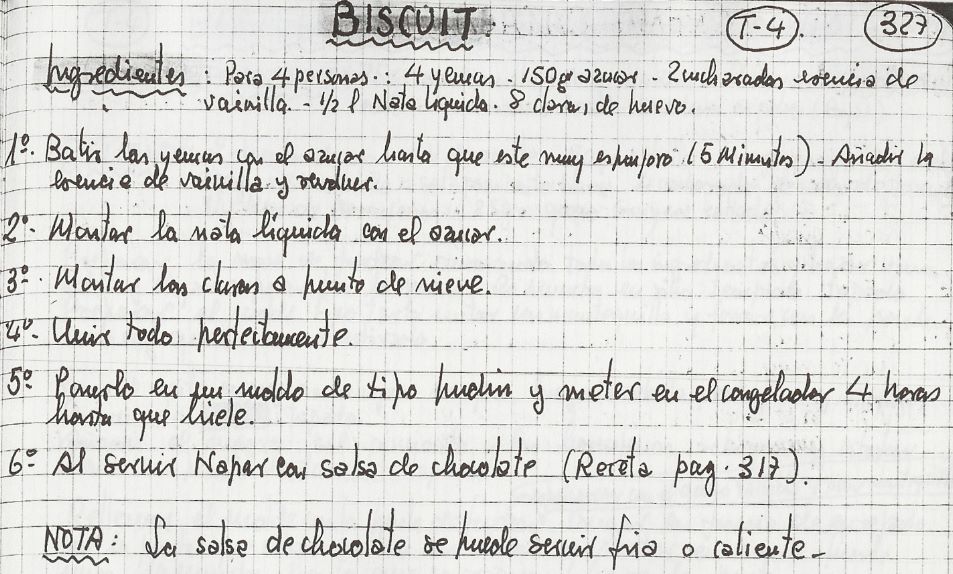 BISCUIT T-4). 327
Ingredientes : Para 4 personas.: 4 yemas - 150gr azucar - 2 cucharadas esencia de
vainilla. - 1/2 l Nata líquida. 8 claras de huevo.
1º. Batir las yemas con el azucar hasta que este muy esponjoso (5 Minutos) - Añadir la
esencia de vainilla y revolver.
2º. Montar la nata líquida con el azucar.
3º. Montar las claras a punto de nieve.
4º. Unir todo perfectamente.
5º Ponerlo en un molde de tipo pudin y meter en el congelador 4 horas
hasta que hiele.
6º Al servir Napar con salsa de chocolate (Receta pag. 317).
NOTA: La salsa de chocolate se puede servir fria o caliente-